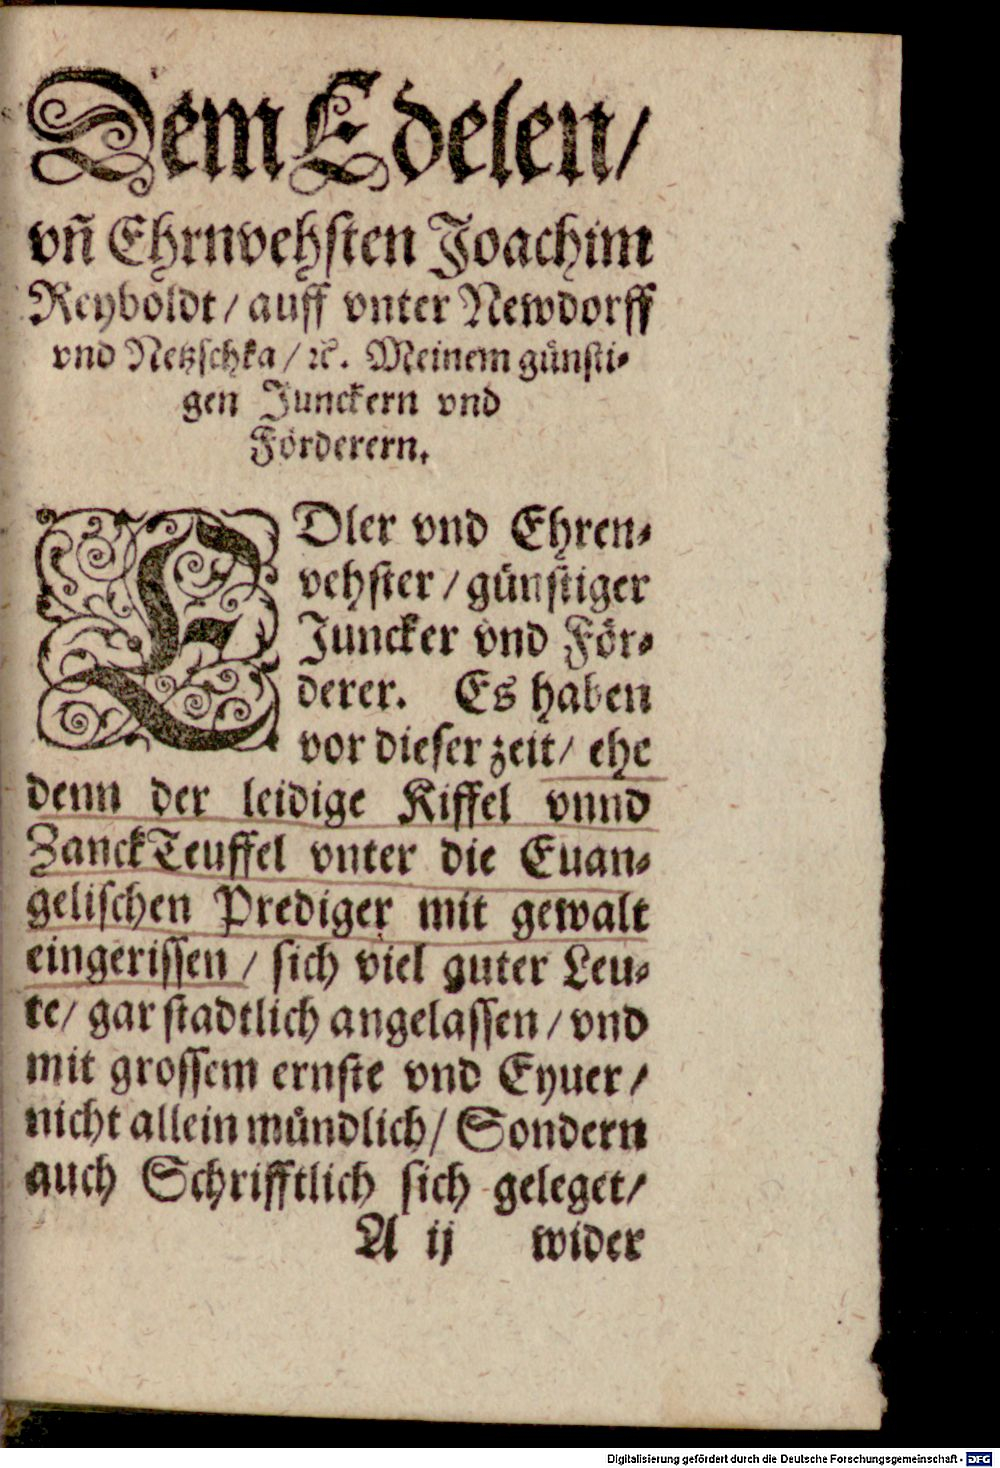 Dem Edelen/
vñ Ehrnvehſten Joachim
Reyboldt/ auff vnter Newdorff
vnd Netzſchka/ ꝛc. Meinem günſti⸗
gen Junckern vnd
Förderern.
EDler vnd Ehren⸗
vehſter/ günſtiger
Juncker vnd För⸗
derer. Es haben
vor dieſer zeit/ ehe
denn der leidige Kiffel vnnd
ZanckTeuffel vnter die Euan⸗
geliſchen Prediger mit gewalt
eingeriſſen/ ſich viel guter Leu⸗
te/ gar ſtadtlich angelaſſen/ vnd
mit groſſem ernſte vnd Eyuer/
nicht allein mündlich/ Sondern
auch Schrifftlich ſich geleget/
A ij wider
Digitalisierung gefördert durch die Deutsche Forschungsgemeinschaft - DFG